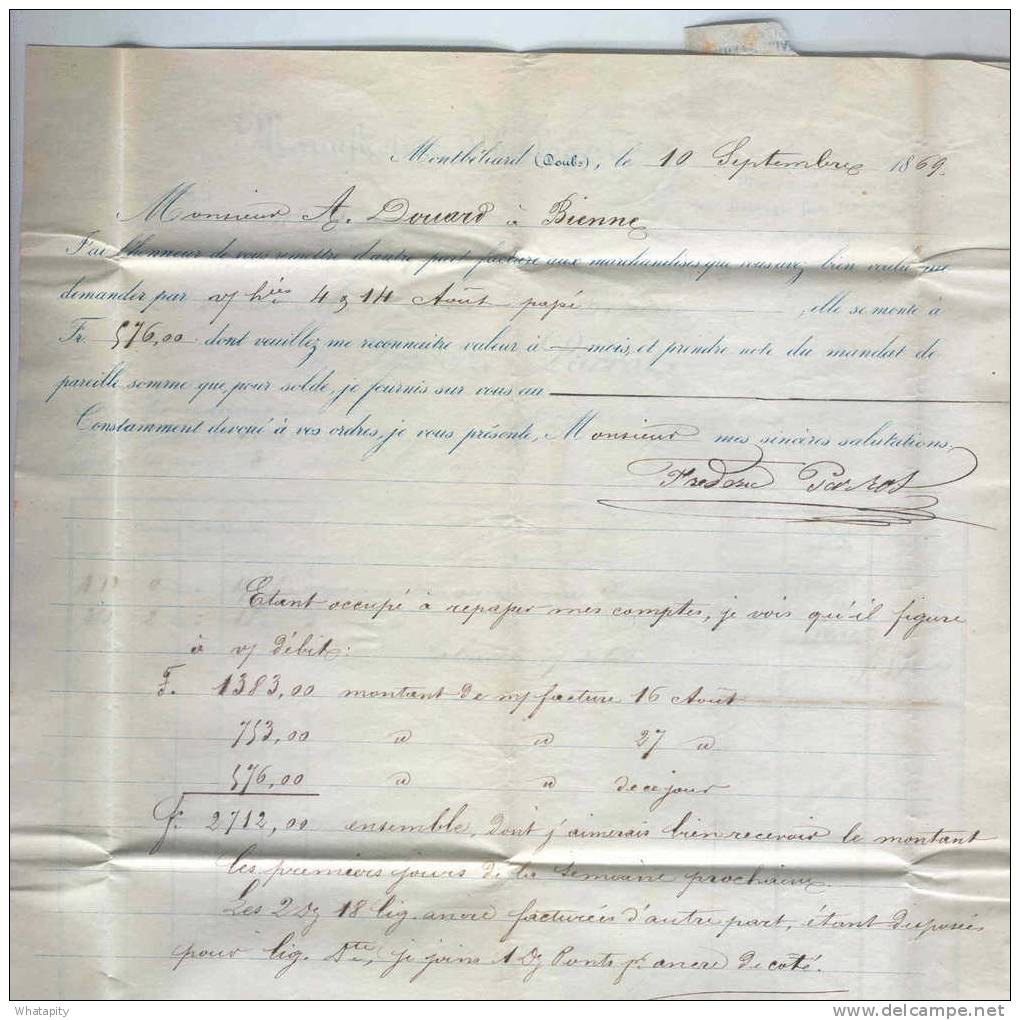 Montbéliard (Doubs), le 10 Septembre 1869.
Monsieur A. Douard à Bienne
J'ai l'honneur de vous remettre d'autre part facture aux marchandises que vous avez bien voulu me
demander par v/ 4 & 14 Août , elle se monte à
Fr. 576,00 dont veuillez me reconnaitre valeur à mois, et prendre note du mandat de
pareille somme que, pour solde, je fournis sur vous au
Constamment dévoué à vos ordres, je vous présente, Monsieur mes sincères salutations.
Frédéric Parrot
Etant occupé à repasser mes comptes, je vois qu'il figure
à v/ débit:
F. 1383,00 montant de m/ facture 16 Août
753,00 " " 27 "
576,00 " " de ce jour
F. 2712,00 ensemble, dont j'aimerais bien recevoir le montant
les premiers jours de la semaine prochaine.
Les 2 Dz 18 lig. ancre facturées d'autre part, étant disposées
pour lig. Dte, je joins 1 Dz Ponts pr. ancre de côté.
Whatapity
delcampe.net